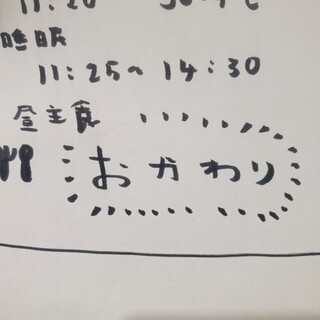 睡眠
11:25〜14:30
昼主食
おかわり